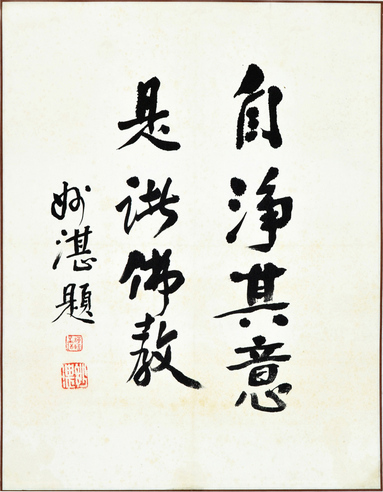 自淨其意
是諸佛教
妙湛題